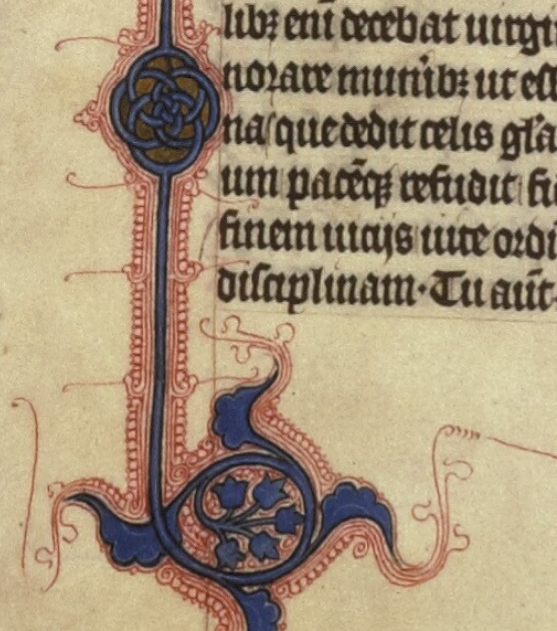 libꝫ eni decebat uirgi
norare munibꝫ ut est
na que dedit celis gla
um pacēqꝫ refudit fi
finem uicijs uite ordi
disciplinam · Tu aūt